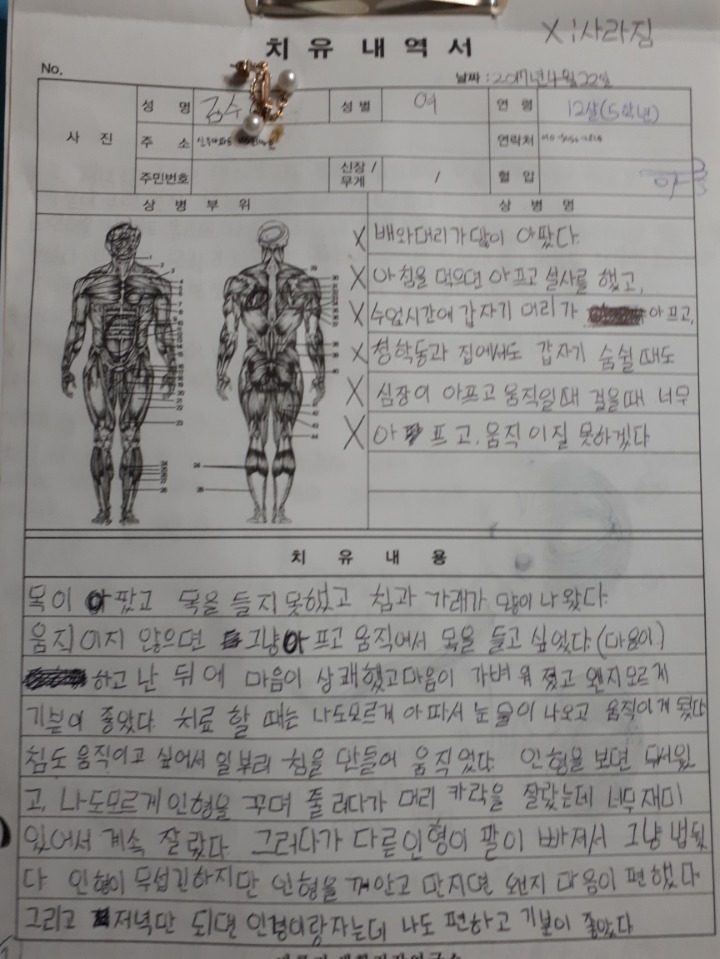 X : 사라짐
치 유 내 역 서
No.
날짜 : 2017년 4월 22일
사 진
성 명 김수
성 별 여
연 령 12살(5학년)
주 소
연락처
주민번호
신장 / 무게 /
혈 압
상 병 부 위
상 병 명
X 배와 머리가 많이 아팠다.
X 아침을 먹으면 아프고 설사를 했고,
X 수업시간에 갑자기 머리가 아프고,
X 청학동과 집에서도 갑자기 숨쉴 때도
X 심장이 아프고 움직일때 걸을때 너무
X 아프고, 움직이질 못하겠다
치 유 내 용
목이 아팠고 목을 들지 못했고 침과 가래가 많이 나왔다.
움직이지 않으면 그냥 아프고 움직여서 목을 들고 싶었다 (마음이)
하고 난 뒤에 마음이 상쾌했고 마음이 가벼워 졌고 왠지모르게
기분이 좋았다. 치료 할 때는 나도모르게 아파서 눈물이 나오고 움직이게 됬다
침도 움직이고 싶어서 일부러 침을 만들어 움직였다. 인형을 보면 무서웠
고, 나도모르게 인형을 꾸며 줄려다가 머리카락을 잘랐는데 너무 재미
있어서 계속 잘랐다. 그러다가 다른인형이 팔이 빠져서 그냥 냅뒀
다 인형이 무섭긴하지만 인형을 껴안고 만지면 왠지 마음이 편했다.
그리고 저녁만 되면 인형이랑자는데 나도 편하고 기분이 좋았다